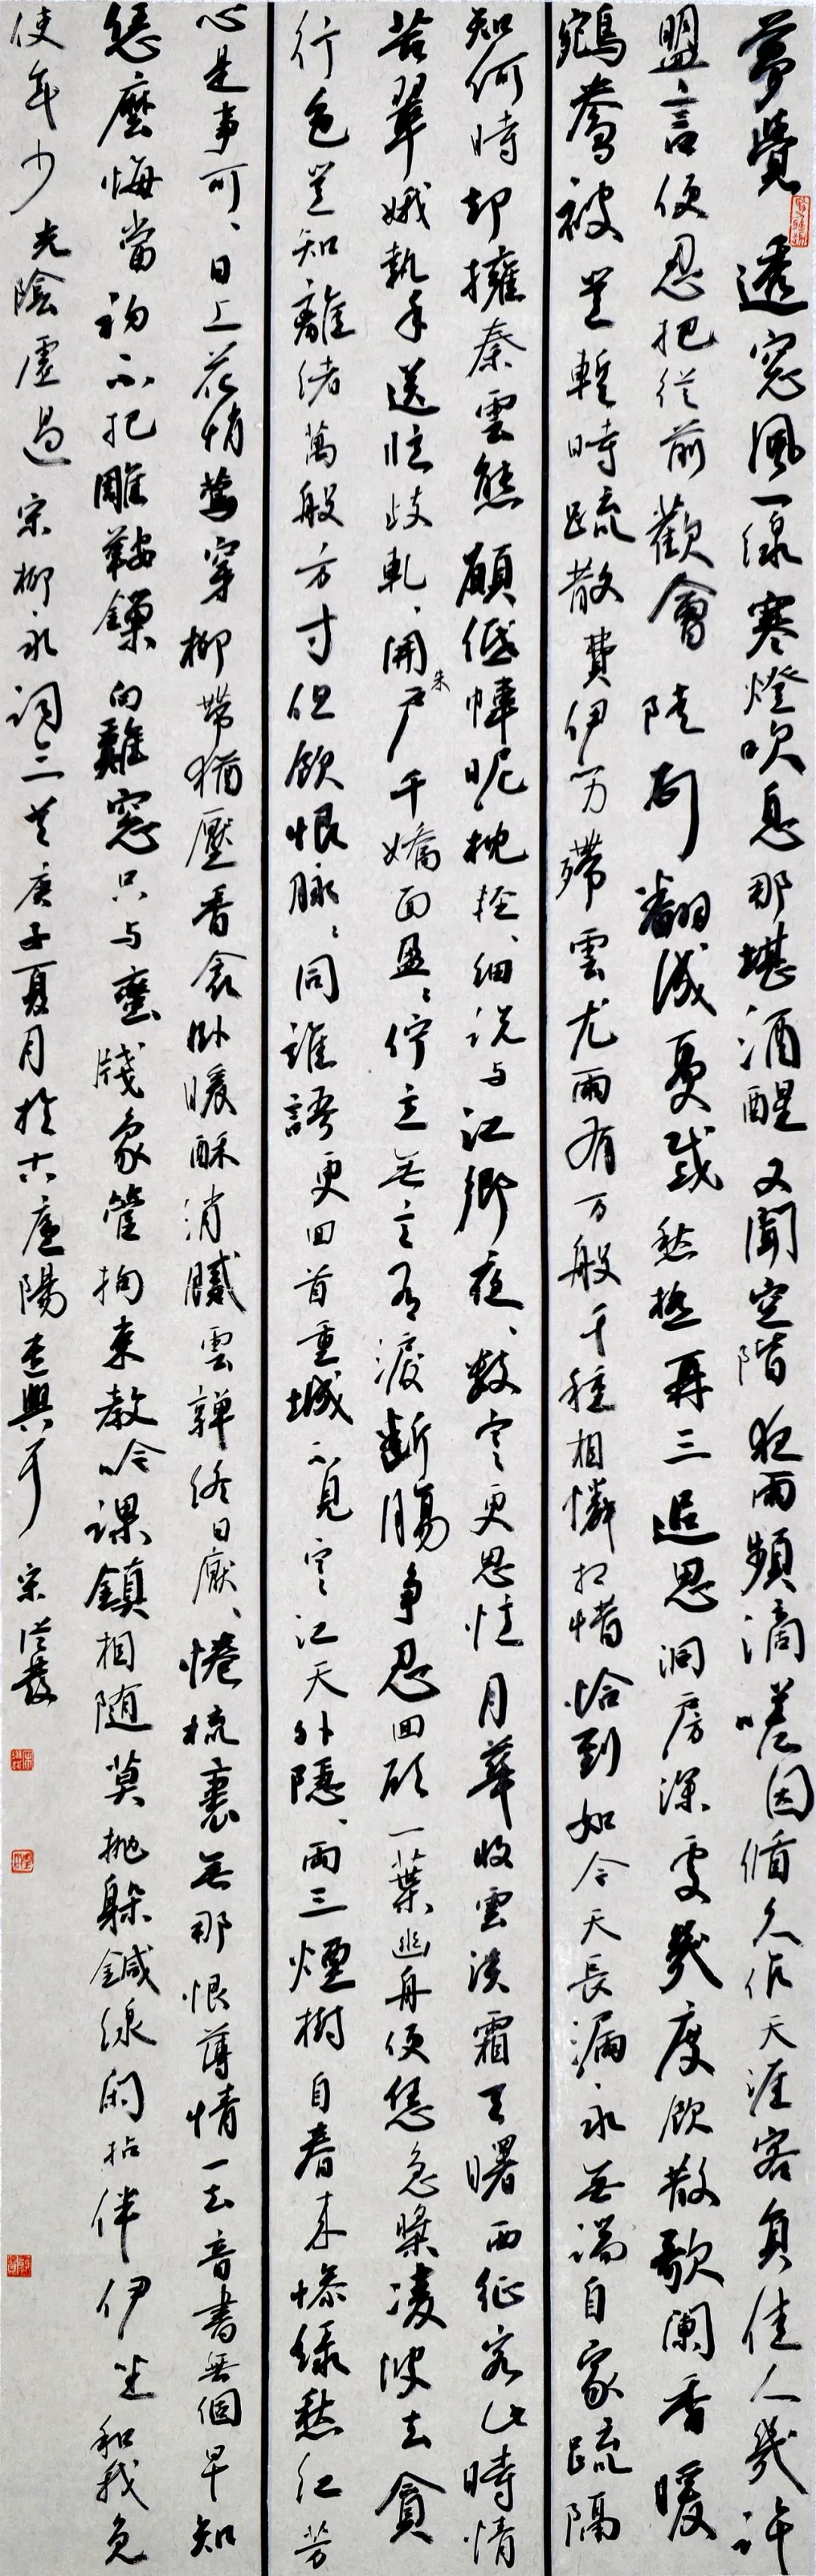 夢覺透窓風一線寒燈吹息那堪酒醒又聞空階夜雨頻滴嗟因循久作天涯客負佳人幾許
盟言便忍把從前歡會陡翻成憂戚愁極再三追思洞房深處幾度飲散歌闌香暖
鵷鴦被豈暫時疏散費伊心力殢雲尤雨有万般千種相憐相惜恰到如今天長漏永無端自家疏隔
知何時却擁秦雲態願低幃昵枕輕、細說与江鄉夜、數寒更思憶月華收雲淡霜天曙西征客此時情
苦翠娥執手送臨歧軋、開朱户千嬌面盈、佇立無言有淚斷腸爭忍回顧一葉蘭舟便恁急槳凌波去貪
行色豈知離緒萬般方寸但飲恨脉、同誰語更回首重城不見寒江天外隱、兩三煙樹自春來慘綠愁紅芳
心是事可、日上花梢鶯穿柳帶猶壓香衾卧暖酥消膩雲嚲終日厭、倦梳裹無那恨薄情一去音書無個早知
恁麼悔當初不把雕鞍鎖向雞窓只与蠻牋象管拘束教吟課鎮相隨莫抛躲鍼線閑拈伴伊坐和我免
使年少光陰虛過宋柳永詞三首庚子夏月於古廬陽宋從發